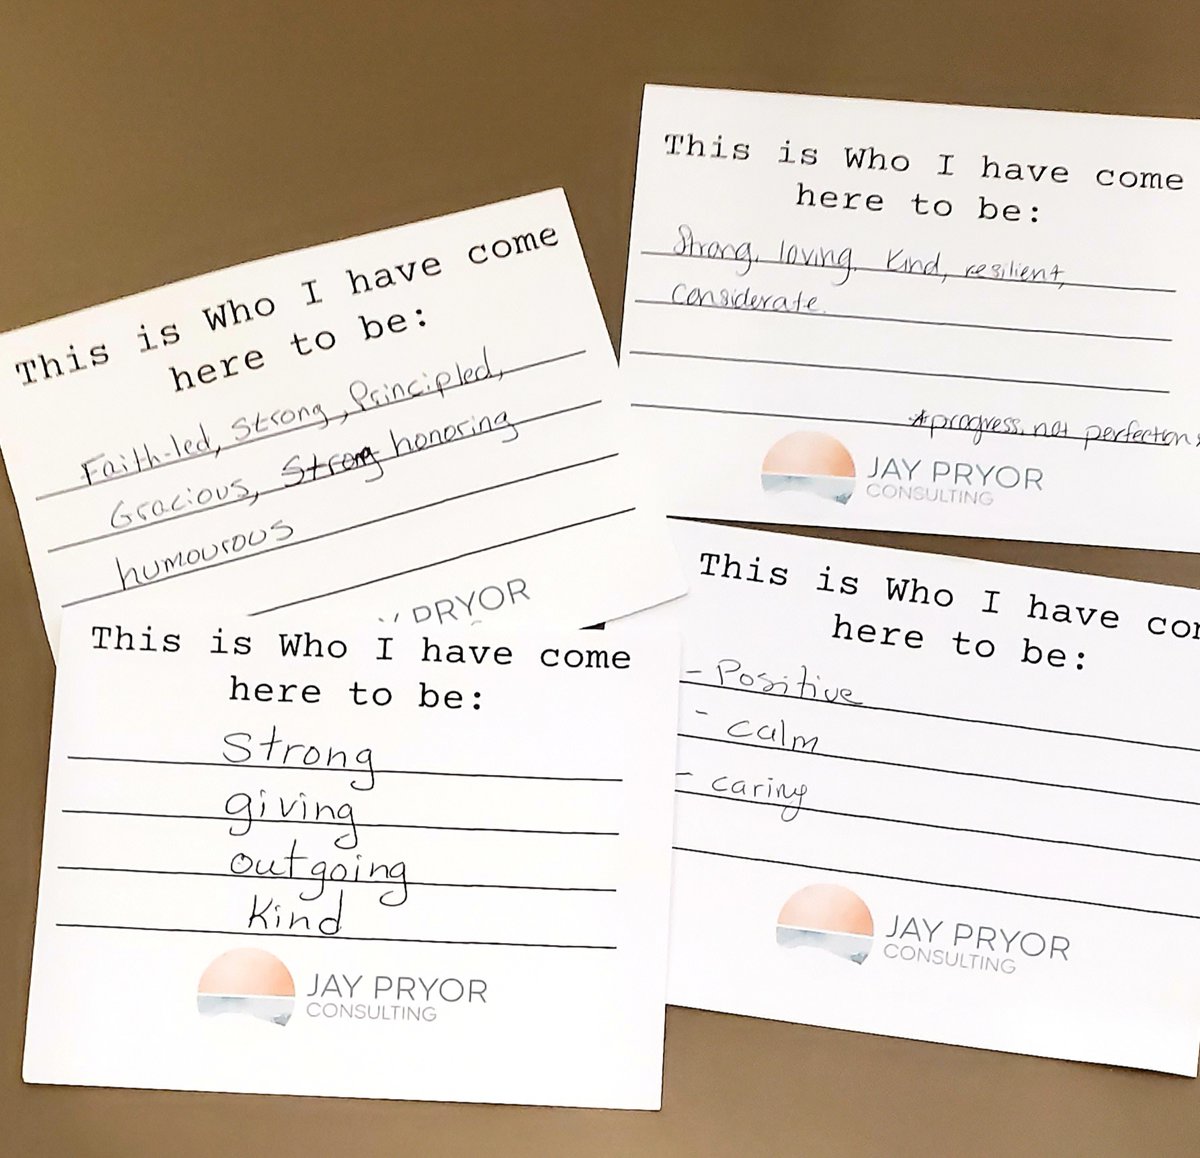 This is Who I have come
here to be:
Faith-led, Strong, Principled,
Gracious, Strong honoring
humourous
PRYOR
This is Who I have come
here to be:
Strong, loving, Kind, resilient,
considerate.
*progress, not perfection
JAY PRYOR
CONSULTING
This is Who I have come
here to be:
Strong
giving
outgoing
Kind
JAY PRYOR
CONSULTING
This is Who I have co
here to be:
- Positive
- calm
- caring
JAY PRYOR
CONSULTING